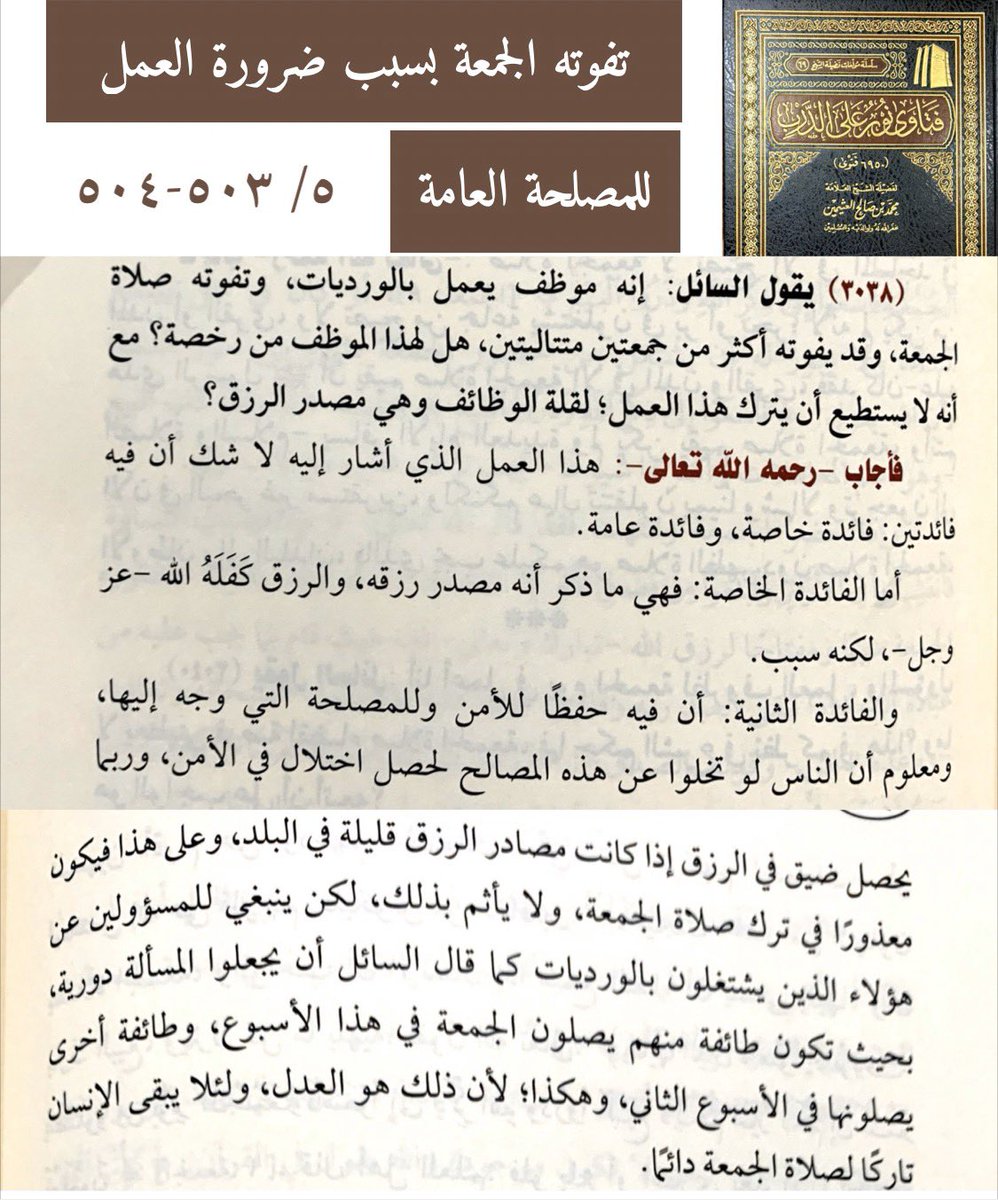 تفوته الجمعة بسبب ضرورة العمل
للمصلحة العامة
٥/ ٥٠٣-٥٠٤
سلسلة مؤلفات فضيلة الشيخ (٦٩)
فتاوى نور على الدرب
(٦٩٥٠ فتوى)
لفضيلة الشيخ العلامة
محمد بن صالح العثيمين
غفر الله له ولوالديه وللمسلمين
(٣٠٣٨) يقول السائل: إنه موظف يعمل بالورديات، وتفوته صلاة
الجمعة، وقد يفوته أكثر من جمعتين متتاليتين، هل لهذا الموظف من رخصة؟ مع
أنه لا يستطيع أن يترك هذا العمل؛ لقلة الوظائف وهي مصدر الرزق؟
فأجاب -رحمه الله تعالى-: هذا العمل الذي أشار إليه لا شك أن فيه
فائدتين: فائدة خاصة، وفائدة عامة.
أما الفائدة الخاصة: فهي ما ذكر أنه مصدر رزقه، والرزق كَفَلَهُ الله -عز
وجل-، لكنه سبب.
والفائدة الثانية: أن فيه حفظًا للأمن وللمصلحة التي وجه إليها،
ومعلوم أن الناس لو تخلوا عن هذه المصالح لحصل اختلال في الأمن، وربما
يحصل ضيق في الرزق إذا كانت مصادر الرزق قليلة في البلد، وعلى هذا فيكون
معذورًا في ترك صلاة الجمعة، ولا يأثم بذلك، لكن ينبغي للمسؤولين عن
هؤلاء الذين يشتغلون بالورديات كما قال السائل أن يجعلوا المسألة دورية،
بحيث تكون طائفة منهم يصلون الجمعة في هذا الأسبوع، وطائفة أخرى
يصلونها في الأسبوع الثاني، وهكذا؛ لأن ذلك هو العدل، ولئلا يبقى الإنسان
تاركًا لصلاة الجمعة دائمًا.